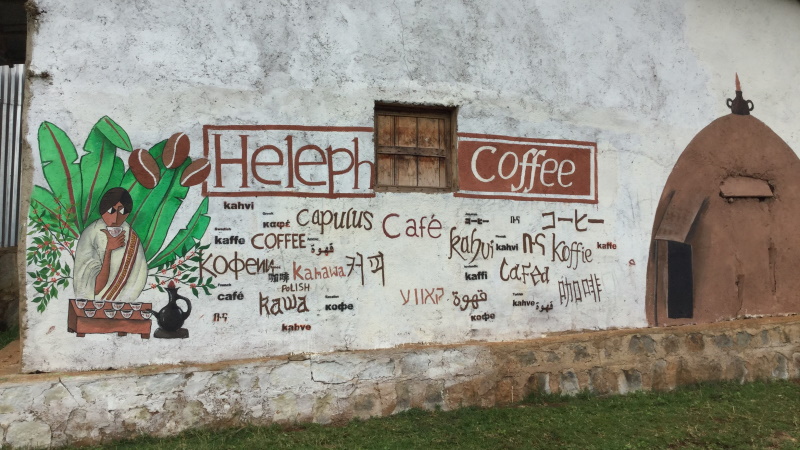 Heleph
Coffee
kahvi
капрé
Capulus
Café
コーヒー
ቡና
コーヒー
kaffe
COFFEE
قهوة
kahvi
kahvi
ቡና
Koffie
kaffe
咖啡
Kahawa
커피
kaffi
Cafea
咖啡
café
POLISH
kawa
кофе
קאווע
قهوة
kahve
قهوة
ቡና
kahve
кофе